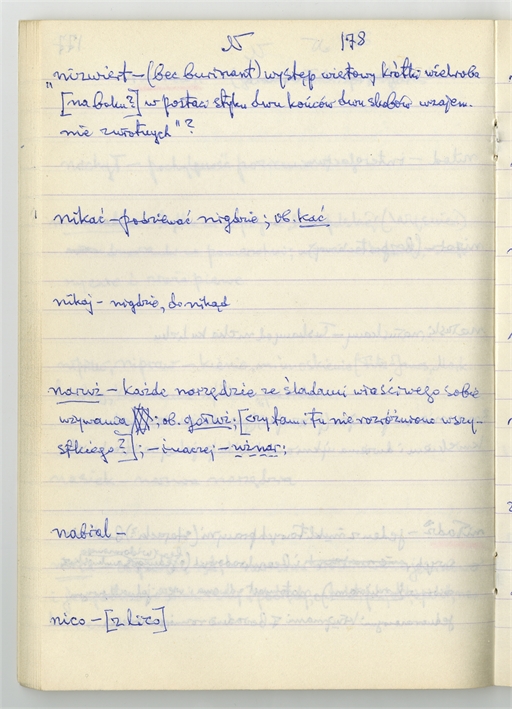 N 178
"nizwiert – (bec burinant) występ wietowy krótki wieloroba
[na boku?] w postaci styku dwu końców dwu słabów wzajem.
nie zwotnych"?
nikać – podziewać nigdzie; ob. kać
nikaj – nigdzie, do nikąd
narwż – każde narzędzie ze śladami właściwego sobie
używania; ob. gołwż; [czy tam i tu nie rozróżniono wszy-
stkiego?]; – inaczej – wżnar;
nabial –
nico – [z lico]